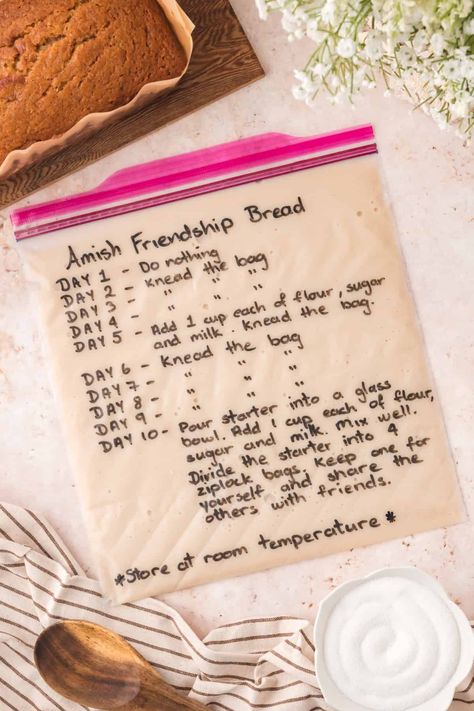 Amish Friendship Bread
DAY 1 - Do nothing
DAY 2 - Knead the bag
DAY 3 - " " "
DAY 4 - " " "
DAY 5 - Add 1 cup each of flour, sugar
and milk. Knead the bag.
DAY 6 - Knead the bag
DAY 7 - " " "
DAY 8 - " " "
DAY 9 - " " "
DAY 10 - Pour starter into a glass
bowl. Add 1 cup each of flour,
sugar and milk. Mix well.
Divide the starter into 4
ziplock bags. Keep one for
yourself and share the
others with friends.
*Store at room temperature*